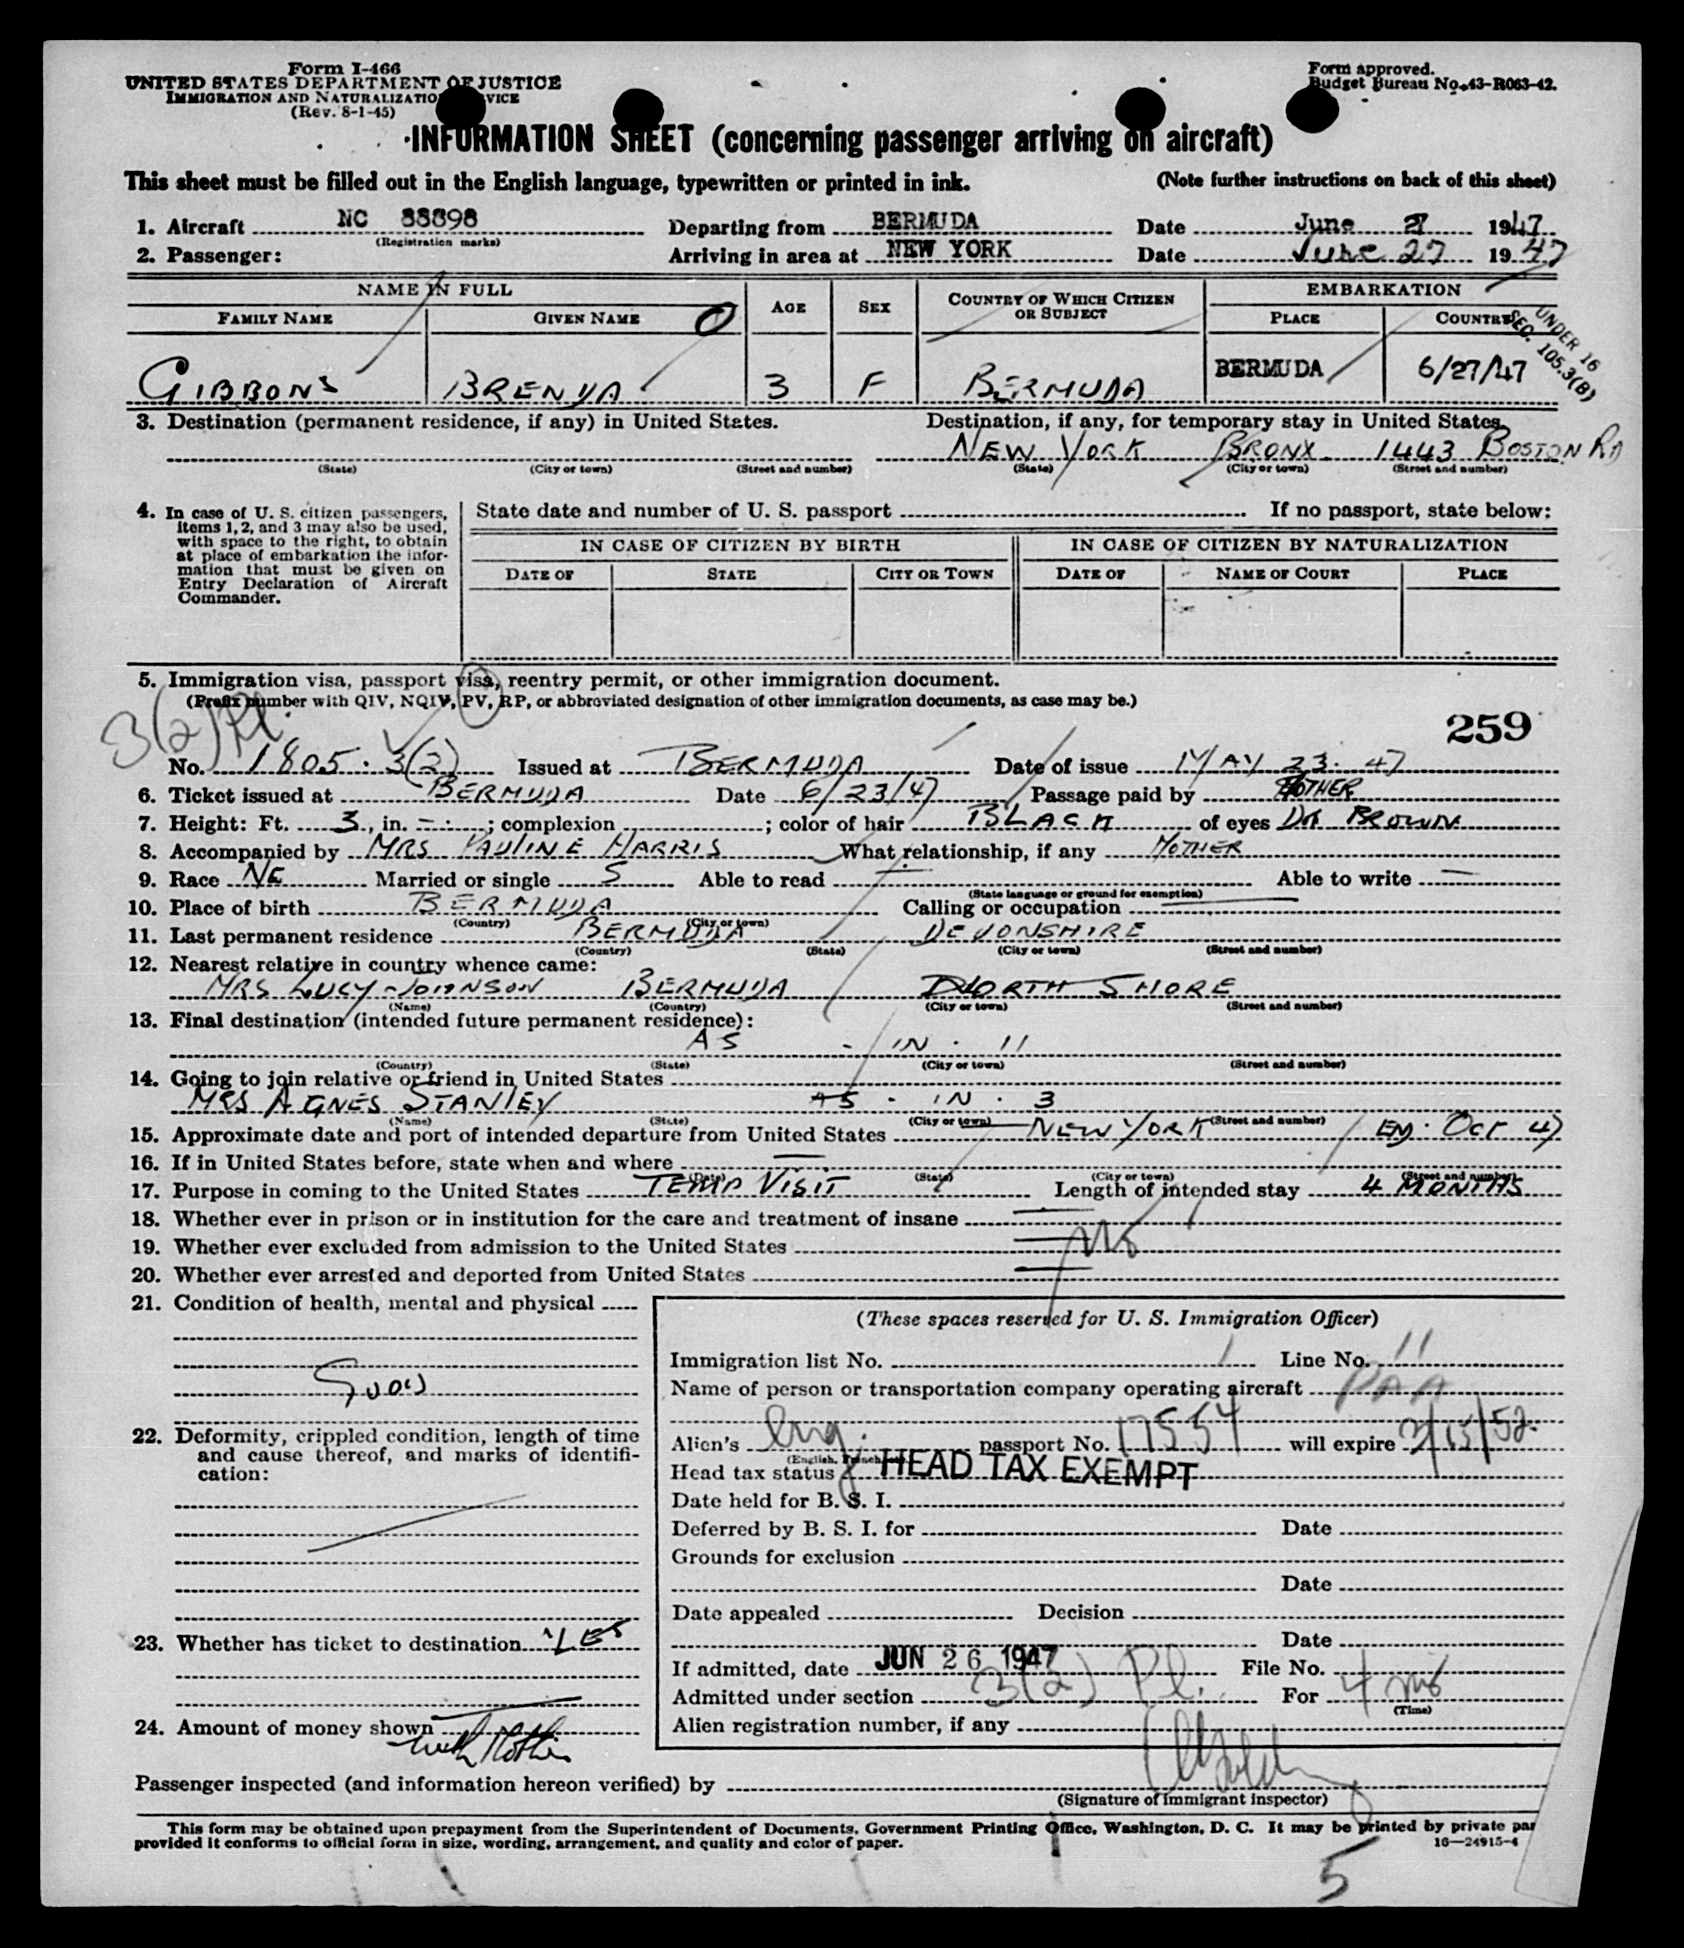 Form I-466
UNITED STATES DEPARTMENT OF JUSTICE
IMMIGRATION AND NATURALIZATION SERVICE
(Rev. 8-1-45)
Form approved.
Budget Bureau No. 43-R063-42.
INFORMATION SHEET (concerning passenger arriving on aircraft)
This sheet must be filled out in the English language, typewritten or printed in ink. (Note further instructions on back of this sheet)
1. Aircraft NC 88898 Departing from BERMUDA Date June 27 1947
(Registration marks)
2. Passenger: Arriving in area at NEW YORK Date June 27 1947
NAME IN FULL AGE SEX COUNTRY OF WHICH CITIZEN OR SUBJECT EMBARKATION
FAMILY NAME GIVEN NAME PLACE COUNTRY
UNDER 16
SEC. 105.3(B)
GIBBONS BRENDA 3 F BERMUDA BERMUDA 6/27/47
3. Destination (permanent residence, if any) in United States. Destination, if any, for temporary stay in United States.
NEW YORK BRONX 1443 BOSTON RD
(State) (City or town) (Street and number) (State) (City or town) (Street and number)
4. In case of U. S. citizen passengers, items 1, 2, and 3 may also be used, with space to the right, to obtain at place of embarkation the information that must be given on Entry Declaration of Aircraft Commander.
State date and number of U. S. passport If no passport, state below:
IN CASE OF CITIZEN BY BIRTH IN CASE OF CITIZEN BY NATURALIZATION
DATE OF STATE CITY OR TOWN DATE OF NAME OF COURT PLACE
5. Immigration visa, passport visa, reentry permit, or other immigration document.
(Prefix number with QIV, NQIV, PV, RP, or abbreviated designation of other immigration documents, as case may be.)
3(2) Pl.
259
No. 1805 . 3(2) Issued at BERMUDA Date of issue MAY 23. 47
6. Ticket issued at BERMUDA Date 6/23/47 Passage paid by MOTHER
7. Height: Ft. 3, in. - ; complexion ; color of hair BLACK of eyes DK BROWN
8. Accompanied by MRS PAULINE HARRIS What relationship, if any MOTHER
9. Race NE Married or single S Able to read — Able to write —
(State language or ground for exemption)
10. Place of birth BERMUDA Calling or occupation
(Country) (City or town)
11. Last permanent residence BERMUDA DEVONSHIRE
(Country) (State) (City or town) (Street and number)
12. Nearest relative in country whence came:
MRS LUCY JOHNSON BERMUDA NORTH SHORE
(Name) (Country) (City or town) (Street and number)
13. Final destination (intended future permanent residence):
AS - IN . 11
(Country) (State) (City or town) (Street and number)
14. Going to join relative or friend in United States
MRS AGNES STANLEY AS . IN . 3
(Name) (State) (City or town) (Street and number)
15. Approximate date and port of intended departure from United States NEW YORK Oct 47
16. If in United States before, state when and where —
(Date) (State) (City or town) (Street and number)
17. Purpose in coming to the United States TEMP VISIT Length of intended stay 4 MONTHS
18. Whether ever in prison or in institution for the care and treatment of insane —
19. Whether ever excluded from admission to the United States — No
20. Whether ever arrested and deported from United States —
21. Condition of health, mental and physical
Good
22. Deformity, crippled condition, length of time and cause thereof, and marks of identification:
23. Whether has ticket to destination YES
24. Amount of money shown with Mother
(These spaces reserved for U. S. Immigration Officer)
Immigration list No. 1 Line No. 11
Name of person or transportation company operating aircraft PAA
Alien's Eng. passport No. 17554 will expire 3/15/52.
(English, French,
Head tax status HEAD TAX EXEMPT
Date held for B. S. I.
Deferred by B. S. I. for Date
Grounds for exclusion
Date
Date appealed Decision
Date
If admitted, date JUN 26 1947 File No.
Admitted under section 3(2) Pl. For 4 mos
(Time)
Alien registration number, if any
Passenger inspected (and information hereon verified) by
(Signature of Immigrant Inspector)
This form may be obtained upon prepayment from the Superintendent of Documents, Government Printing Office, Washington, D. C. It may be printed by private
provided it conforms to official form in size, wording, arrangement, and quality and color of paper. 16—24915-4
5